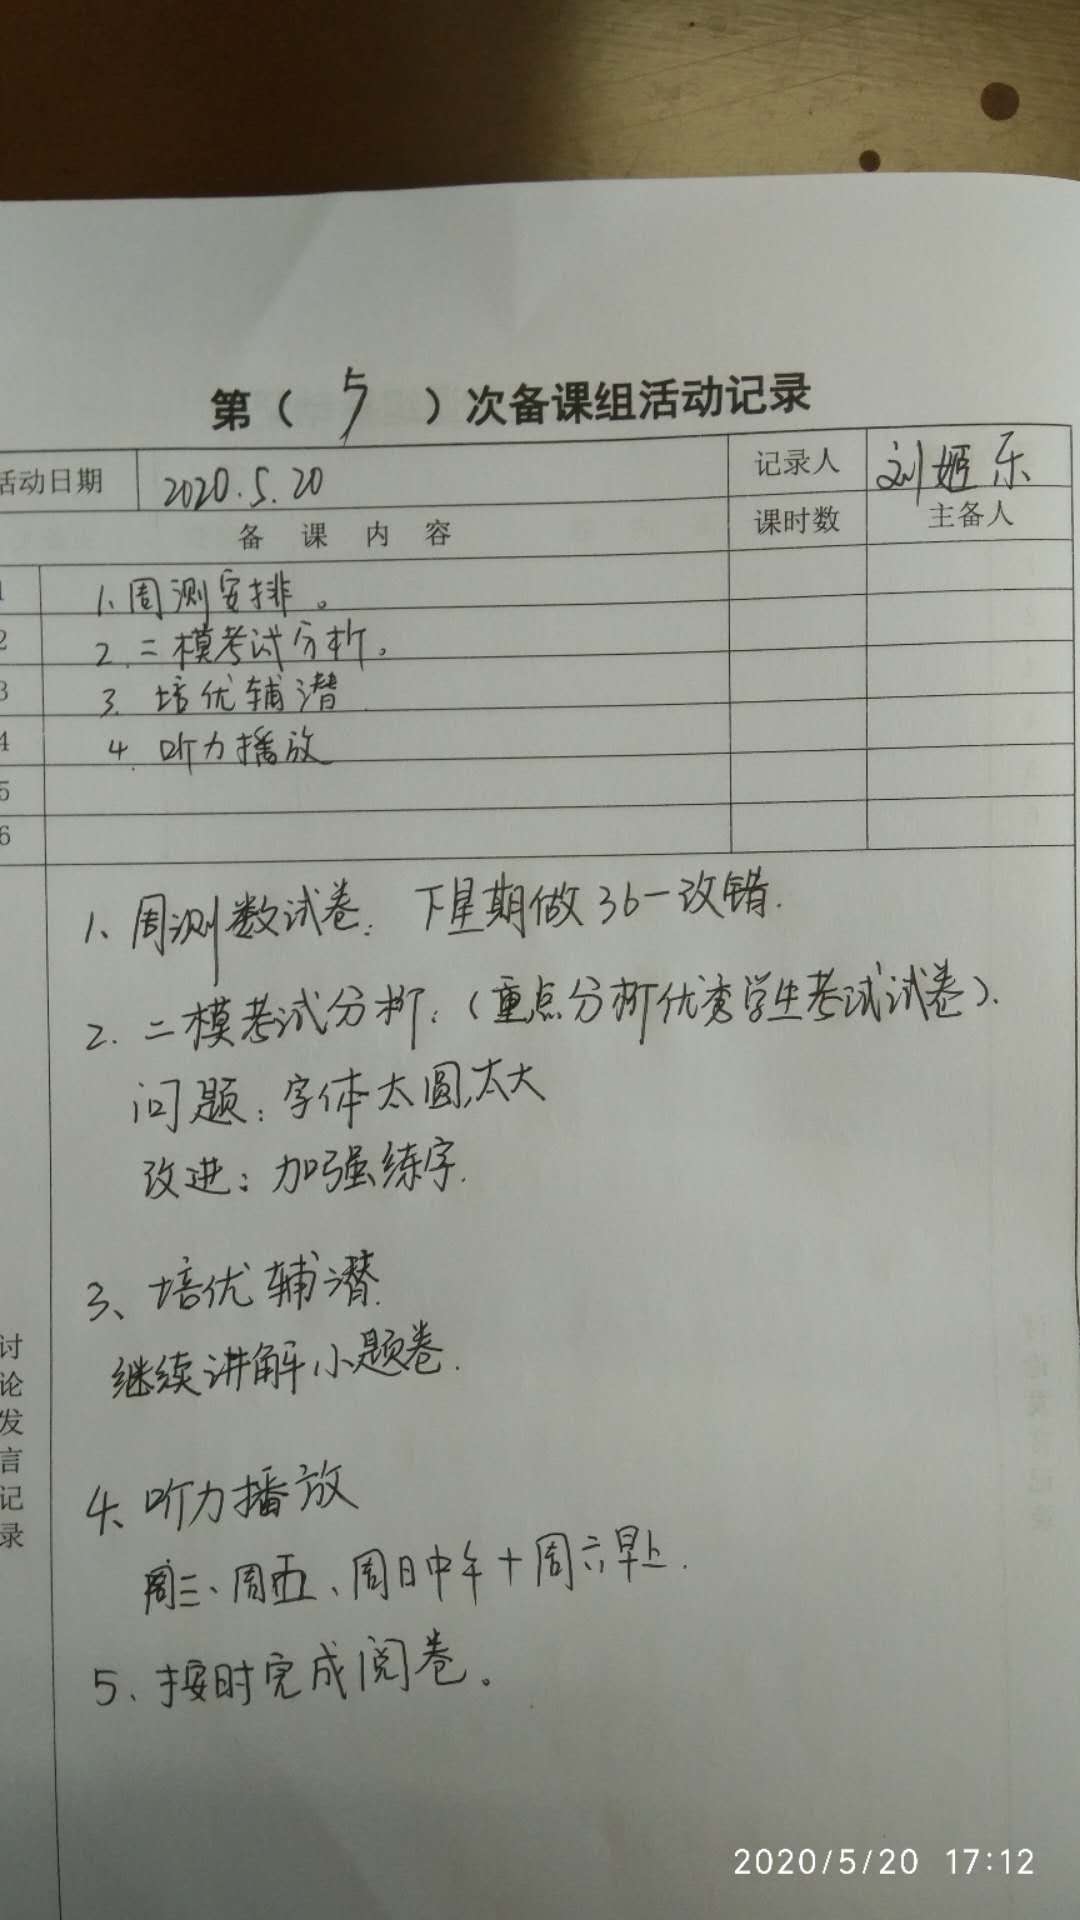 第（ 5 ）次备课组活动记录
活动日期 2020.5.20 记录人 刘姬乐
备 课 内 容 课时数 主备人
1 1、周测安排。
2 2. 二模考试分析。
3 3. 培优辅潜
4 4. 听力播放
5
6
讨论发言记录
1、周测数试卷. 下星期做36一改错.
2. 二模考试分析:（重点分析优秀学生考试试卷）.
问题: 字体太圆,太大
改进: 加强练字.
3、培优辅潜.
继续讲解小题卷.
4、听力播放
周三、周五、周日中午+周六早上.
5、按时完成阅卷。
2020/5/20 17:12